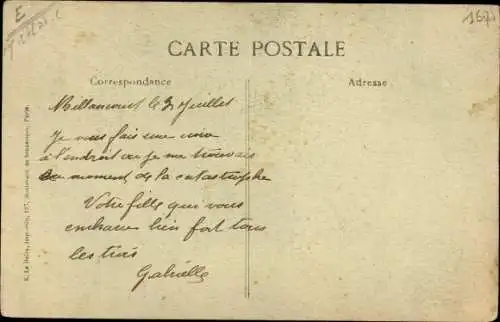 E
167
CARTE POSTALE
Correspondance
Adresse
Billancourt le 3 Juillet
Je vous fais une croix
à l'endroit ou je me trouvais
au moment de la catastrophe
Votre fille qui vous
embrasse bien fort tous
les trois
Gabrielle
E. Le Deley, imp.-édit., 127, Boulevard de Sébastopol, Paris